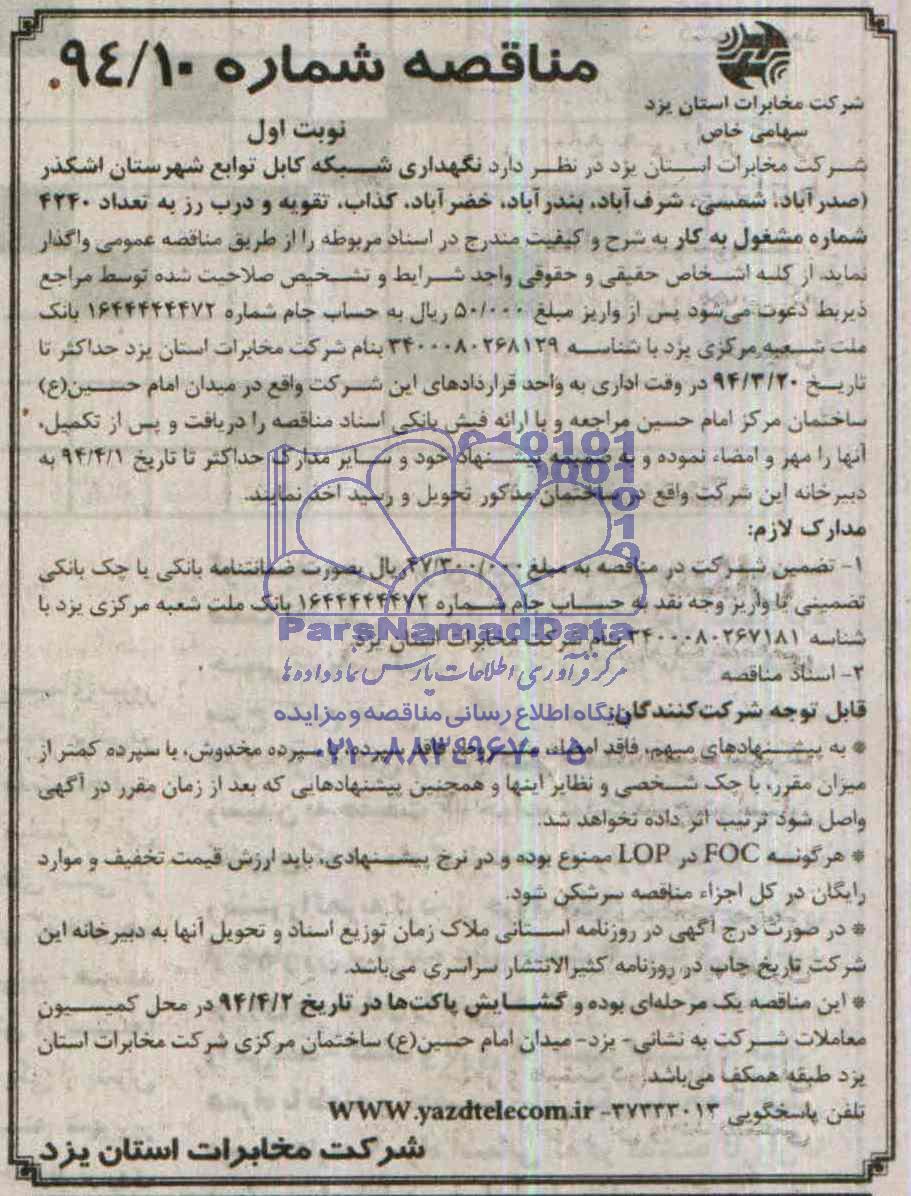 مناقصه شماره ۹٤/۱۰
شرکت مخابرات استان یزد
سهامی خاص
نوبت اول
شرکت مخابرات استان یزد در نظر دارد نگهداری شبکه کابل توابع شهرستان اشکذر
(صدرآباد، شمسی، شرف‌آباد، بندرآباد، خضرآباد، کذاب، تقویه و درب رز به تعداد ۴۲۴۰
شماره مشغول به کار به شرح و کیفیت مندرج در اسناد مربوطه را از طریق مناقصه عمومی واگذار
نماید. از کلیه اشخاص حقیقی و حقوقی واجد شرایط و تشخیص صلاحیت شده توسط مراجع
ذیربط دعوت می‌شود پس از واریز مبلغ ۵۰/۰۰۰ ریال به حساب جام شماره ۱۶۴۴۴۴۴۴۷۲ بانک
ملت شعبه مرکزی یزد با شناسه ۳۴۰۰۰۸۰۲۶۸۱۲۹ بنام شرکت مخابرات استان یزد حداکثر تا
تاریخ ۹۴/۳/۲۰ در وقت اداری به واحد قراردادهای این شرکت واقع در میدان امام حسین(ع)
ساختمان مرکز امام حسین مراجعه و با ارائه فیش بانکی اسناد مناقصه را دریافت و پس از تکمیل،
آنها را مهر و امضاء نموده و به ضمیمه پیشنهاد خود و سایر مدارک حداکثر تا تاریخ ۹۴/۴/۱ به
دبیرخانه این شرکت واقع در ساختمان مذکور تحویل و رسید اخذ نمایند.
مدارک لازم:
۱- تضمین شرکت در مناقصه به مبلغ ۴۷/۳۰۰/۰۰۰ ریال بصورت ضمانتنامه بانکی یا چک بانکی
تضمینی یا واریز وجه نقد به حساب جام شماره ۱۶۴۴۴۴۴۴۷۲ بانک ملت شعبه مرکزی یزد با
شناسه ۳۴۰۰۰۸۰۲۶۷۱۸۱ بنام شرکت مخابرات استان یزد.
ParsNamadData
مرکز فرآوری اطلاعات پارس نماد داده ها
۲- اسناد مناقصه
قابل توجه شرکت‌کنندگان:
پایگاه اطلاع رسانی مناقصه و مزایده
* به پیشنهادهای مبهم، فاقد امضاء، مشروط، فاقد سپرده، یا سپرده مخدوش، یا سپرده کمتر از
۰۲۱-۸۸۳۴۹۶۷۰-۵
میزان مقرر، یا چک شخصی و نظایر اینها و همچنین پیشنهادهایی که بعد از زمان مقرر در آگهی
واصل شود ترتیب اثر داده نخواهد شد.
* هرگونه FOC در LOP ممنوع بوده و در نرخ پیشنهادی، باید ارزش قیمت تخفیف و موارد
رایگان در کل اجزاء مناقصه سرشکن شود.
* در صورت درج آگهی در روزنامه استانی ملاک زمان توزیع اسناد و تحویل آنها به دبیرخانه این
شرکت تاریخ چاپ در روزنامه کثیرالانتشار سراسری می‌باشد.
* این مناقصه یک مرحله‌ای بوده و گشایش پاکت‌ها در تاریخ ۹۴/۴/۲ در محل کمیسیون
معاملات شرکت به نشانی- یزد- میدان امام حسین(ع) ساختمان مرکزی شرکت مخابرات استان
یزد طبقه همکف می‌باشد.
تلفن پاسخگویی ۳۷۲۳۳۰۱۳- WWW.yazdtelecom.ir
شرکت مخابرات استان یزد